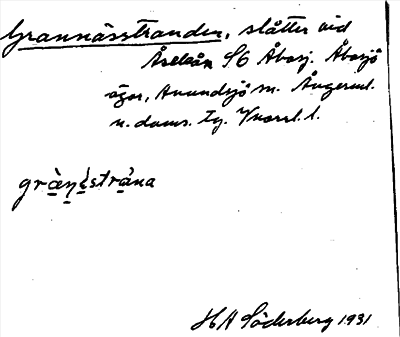 Grannässtranden, slåtter vid
Åseleån S6 Åbosj. Åbosjö
ägor, Anundsjö sn. Ångerml.
n. doms. Tg. Vnorrl. l.
grànǝstrána
HA Söderberg 1931